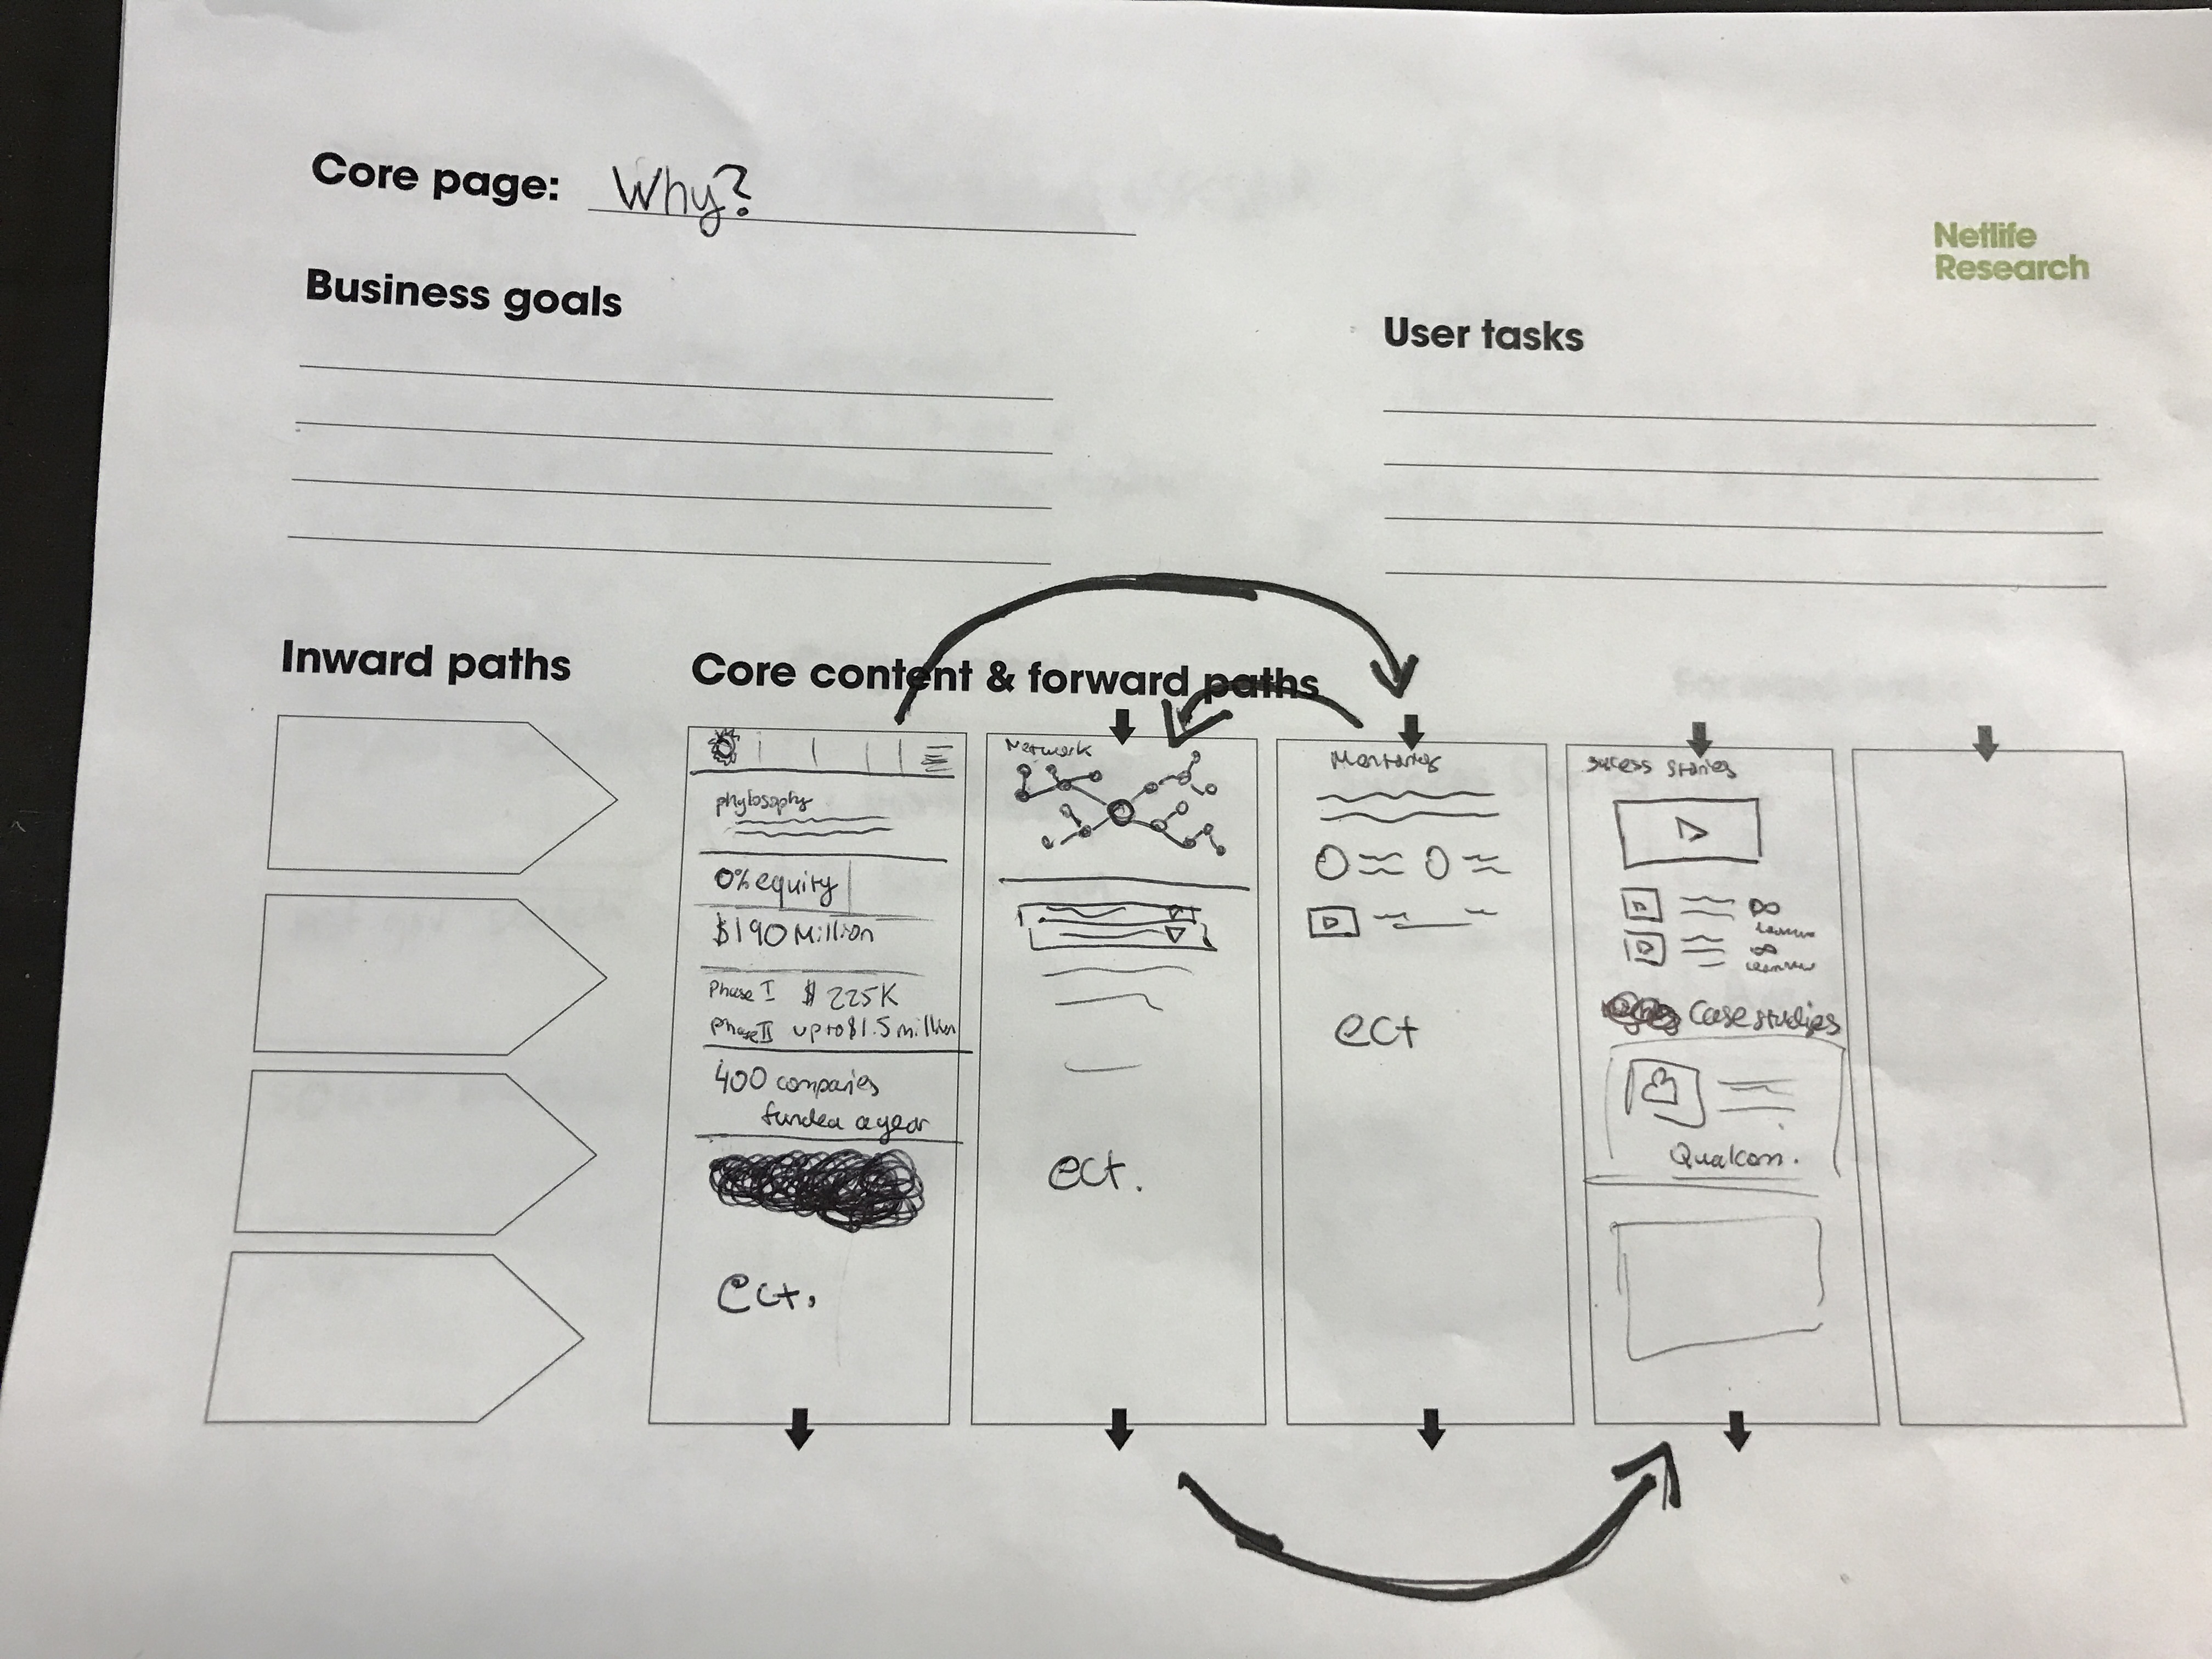 Core page: Why?
Netlife
Research
Business goals
User tasks
Inward paths
Core content & forward paths
phylosophy
0% equity
$190 Million
Phase I $ 225K
Phase II up to $1.5 million
400 companies
funded a year
ect.
Network
ect.
ect
sucess stories
Case studies
Qualcom.